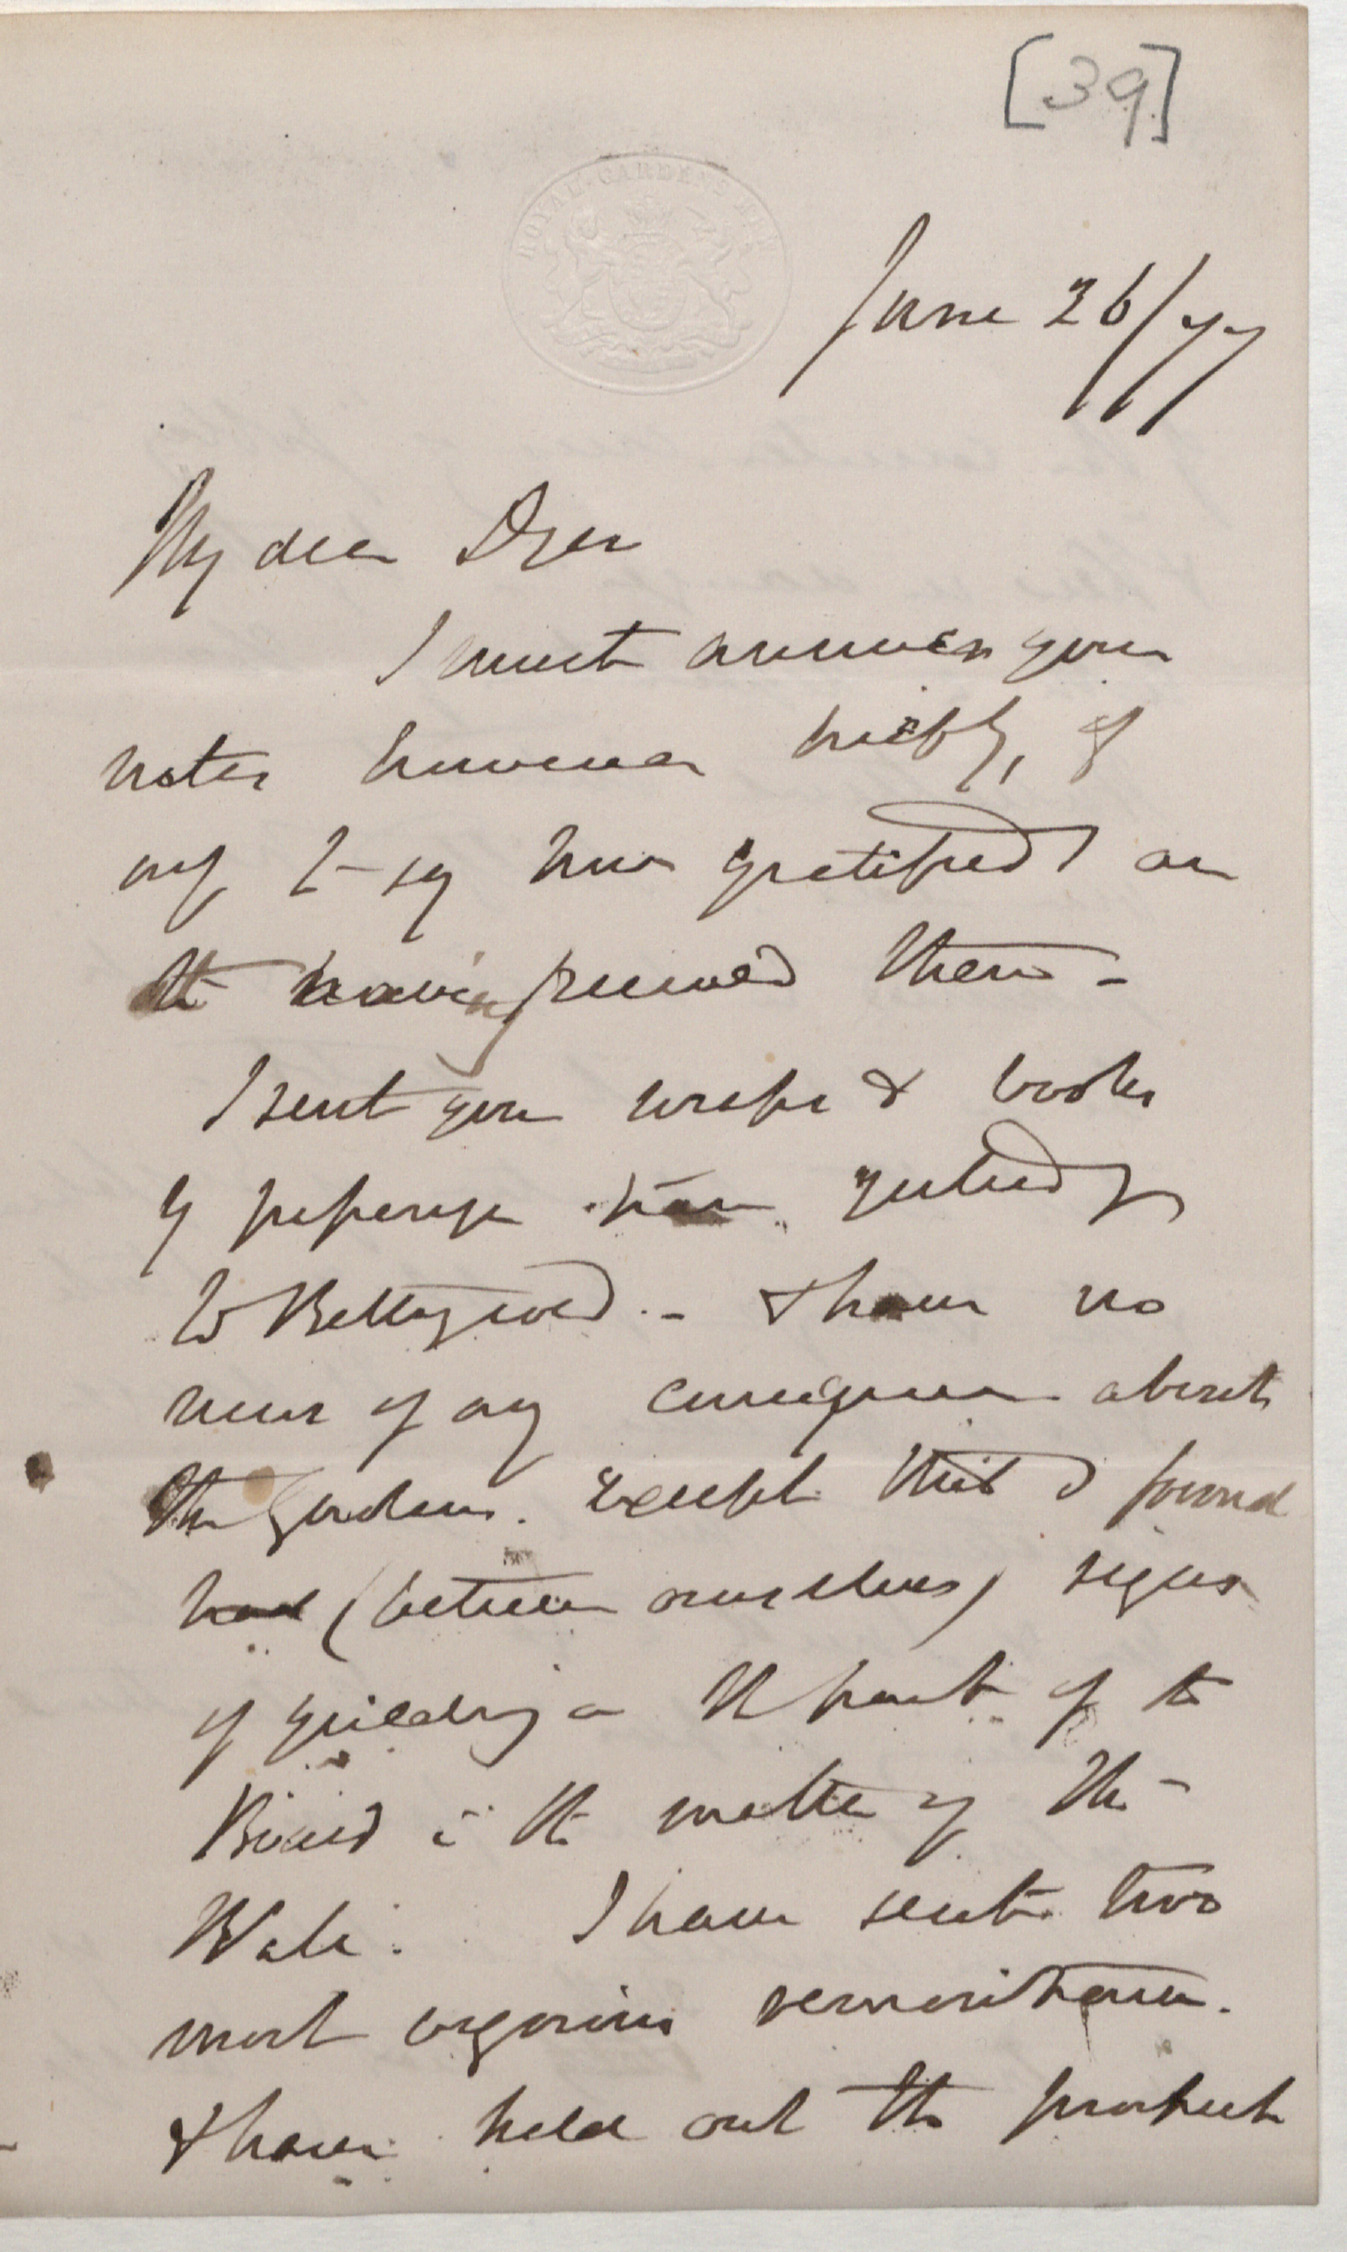 [39]
ROYAL GARDENS KEW
June 26/77
My dear Dyer
I must answer your
notes however briefly, if
only to say how gratified I am
at having received them -
I sent you wraps & books
by passenger train yesterday
to Bettwys coed. - I have no
news of any consequence about
the Gardens. except that I found
had (between ourselves) signs
of yielding on the part of the
Board in the matter of the
Wall. I have sent two
most vigorous remonstrances.
& have held out the prospect